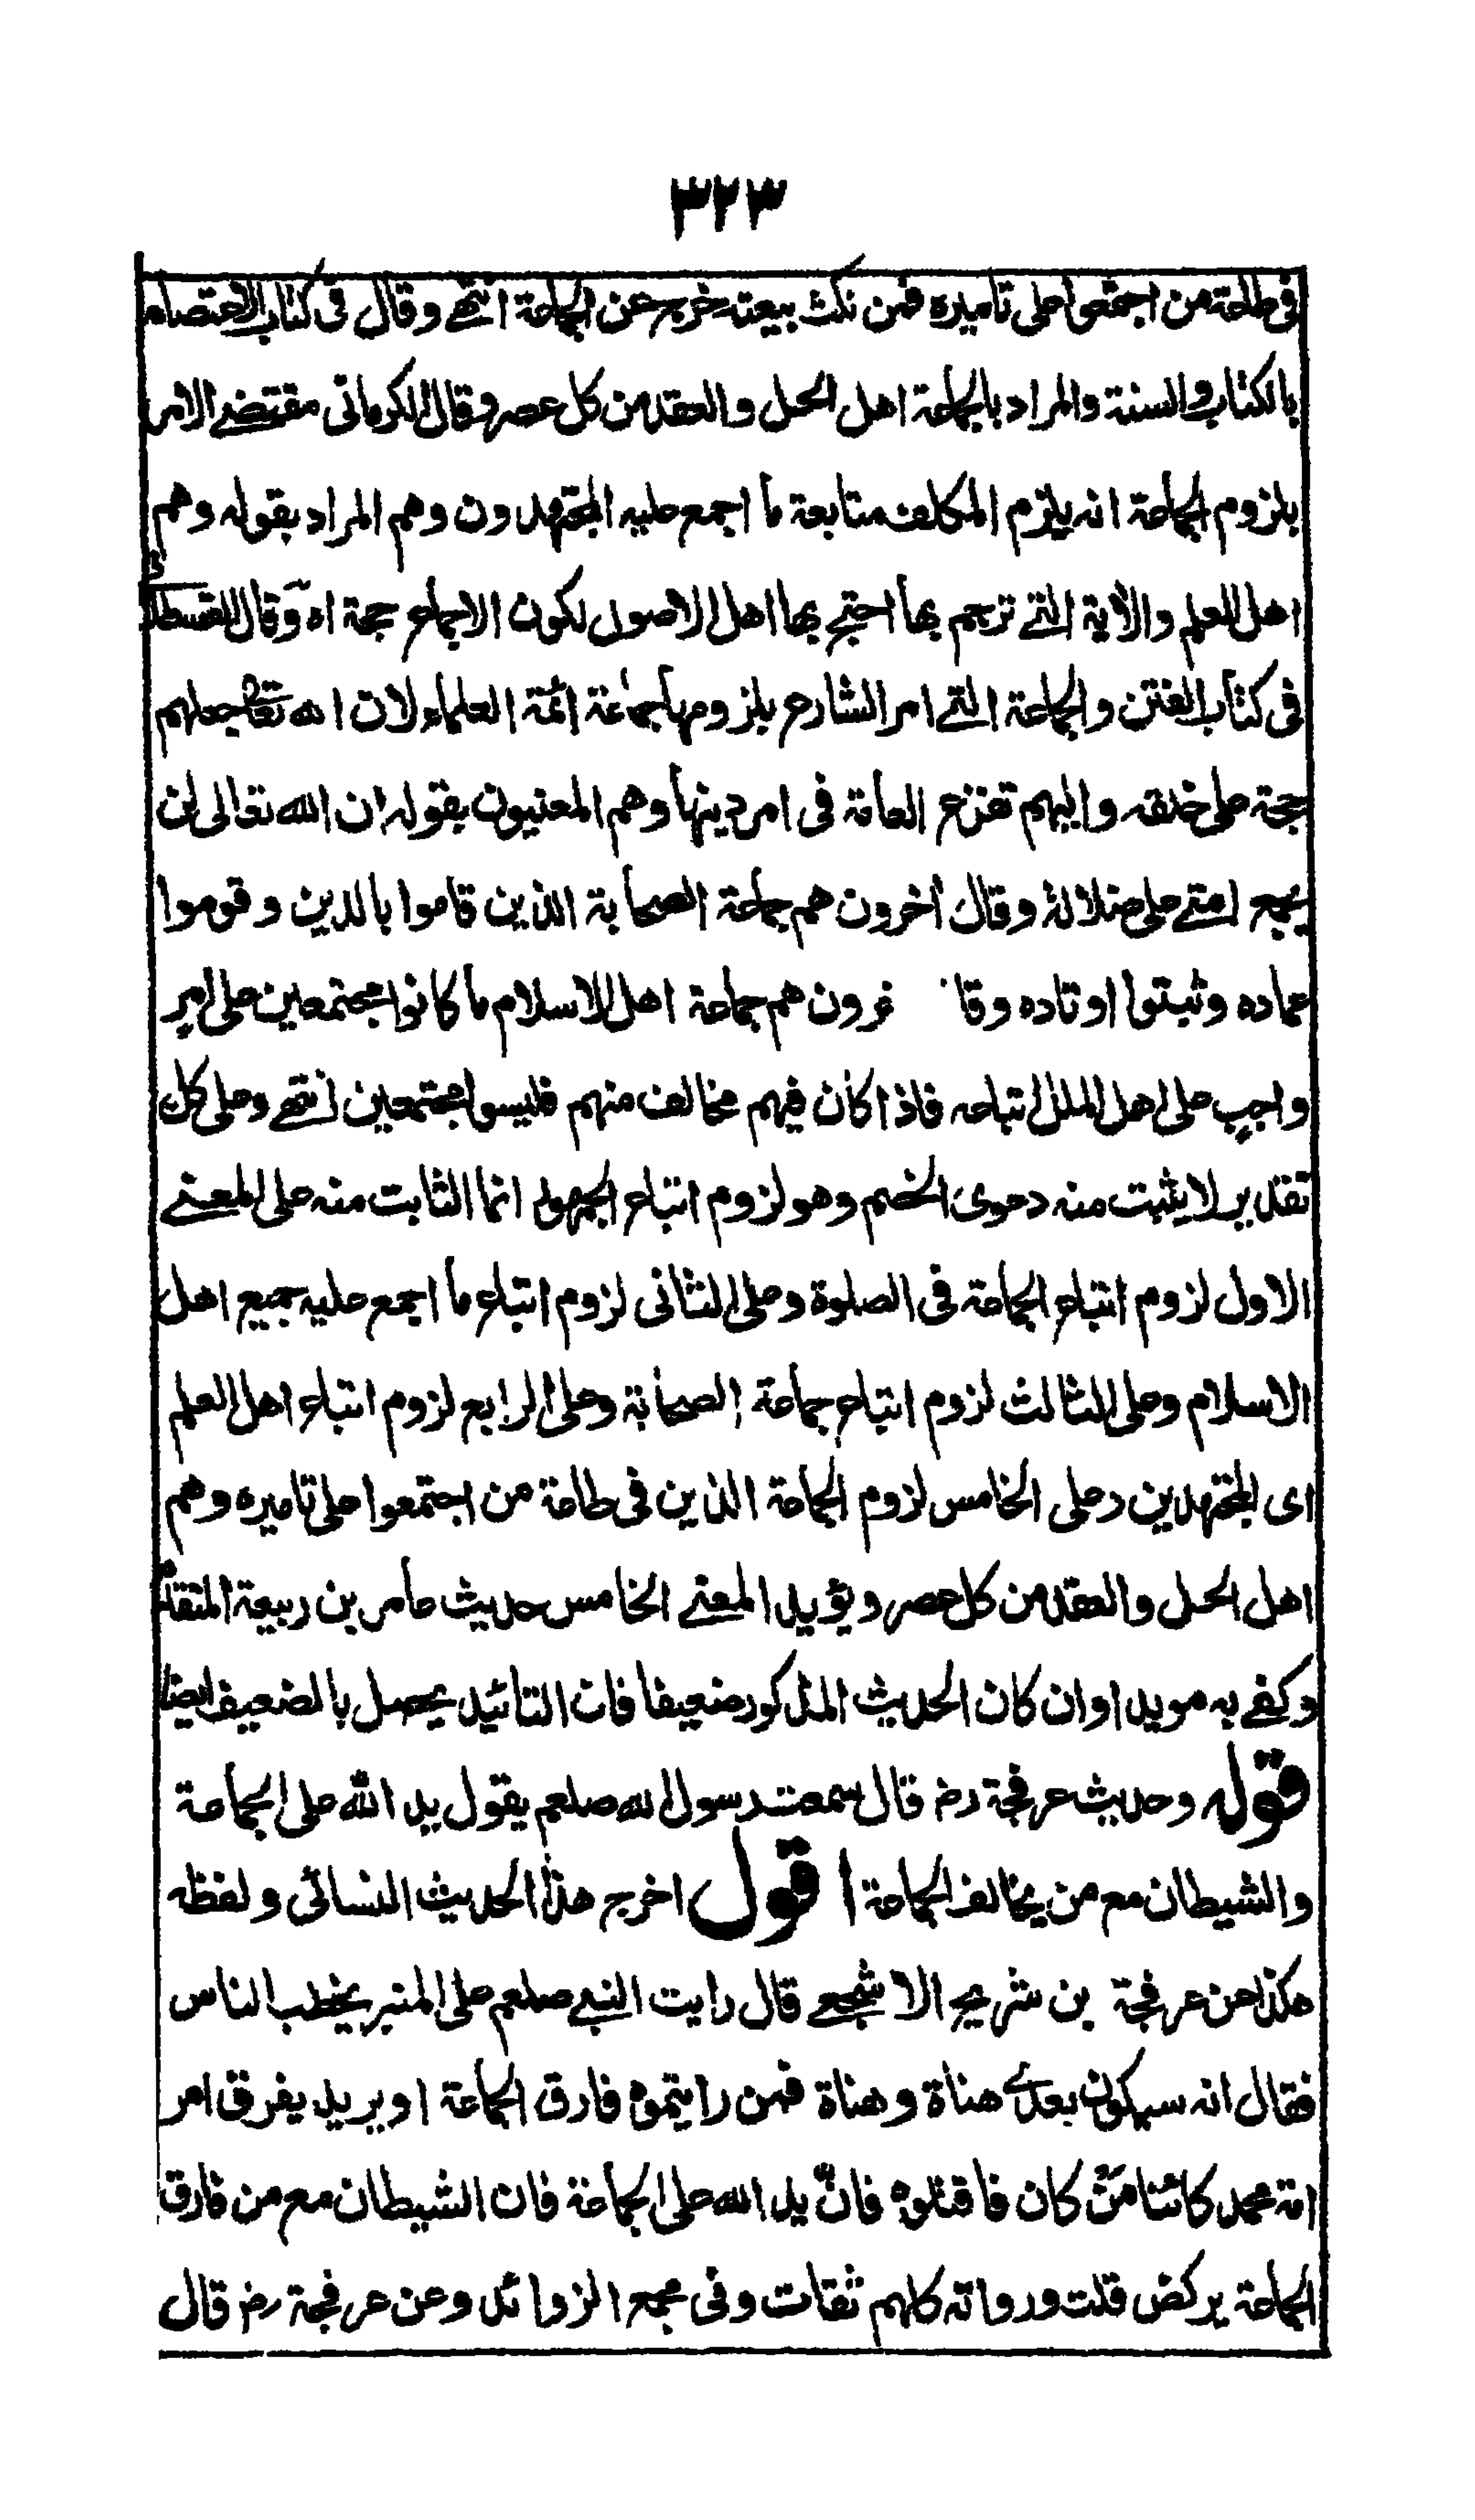 ٣٢٣
فى طاعة من اجتمعوا على تاميره فمن نكث بيعته خرج عن الجماعة انتهى وقال فى كتاب الاعتصام
بالكتاب والسنة والمراد بالجماعة اهل الحل والعقد من كل عصر وقال الكرمانى مقتضے الامر
بلزوم الجماعة انه يلزم المكلف متابعة ما اجمع عليه المجتهدون وهم المراد بقوله وهم
اهل العلم والاية التے ترجم بها احتج بها اهل الاصول لكون الاجماع حجة اه وقال القسطلانى
فى كتاب الفتن والجماعة التے امر الشارع بلزومها جماعة ائمة العلماء لان الله تعالى جعلهم
حجة على خلقه واليهم تفزع العامة فى امر دينها وهم المعنيون بقوله ان الله تعالى لن
يجمع امتے على ضلالة وقال اخرون هم جماعة الصحابة الذين قاموا بالدين وقوموا
عماده وثبتوا اوتاده وقا خرون هم جماعة اهل الاسلام ما كانوا مجتمعين على امر
واجب على اهل الملل اتباعه فاذا كان فيهم مخالف منهم فليسوا مجتمعين انتهے وعلى كل
تقدير لا يثبت منه دعوى الخصم وهو لزوم اتباع الجمهور انما الثابت منه على المعنے
الاول لزوم اتباع الجماعة فى الصلوة وعلى الثانى لزوم اتباع ما اجمع عليه جميع اهل
الاسلام وعلى الثالث لزوم اتباع جماعة الصحابة وعلى الرابع لزوم اتباع اهل العلم
اى المجتهدين وعلى الخامس لزوم الجماعة الذين فى طاعة من اجتمعوا على تاميره وهم
اهل الحل والعقد من كل عصر ويؤيد المعنے الخامس حديث عامر بن ربيعة المتقدم
وكفے به مويدا وان كان الحديث المذكور ضعيفا فان التائيد يحصل بالضعيف ايضا
قوله وحديث عرفجة رض قال سمعت رسول الله صلعم يقول يد الله على الجماعة
والشيطان مع من يخالف الجماعة اقول اخرج هذا الحديث النسائى ولفظه
هكذا عن عرفجة بن شريح الاشجعے قال رايت النبے صلعم على المنبر يخطب الناس
فقال انه سيكون بعدے هناة وهناة فمن رايتموه فارق الجماعة او يريد يفرق امر
امة محمد كائنا من كان فاقتلوه فان يد الله على الجماعة فان الشيطان مع من فارق
الجماعة يركض قلت ورواته كلهم ثقات وفى مجمع الزوائد وعن عرفجة رض قال